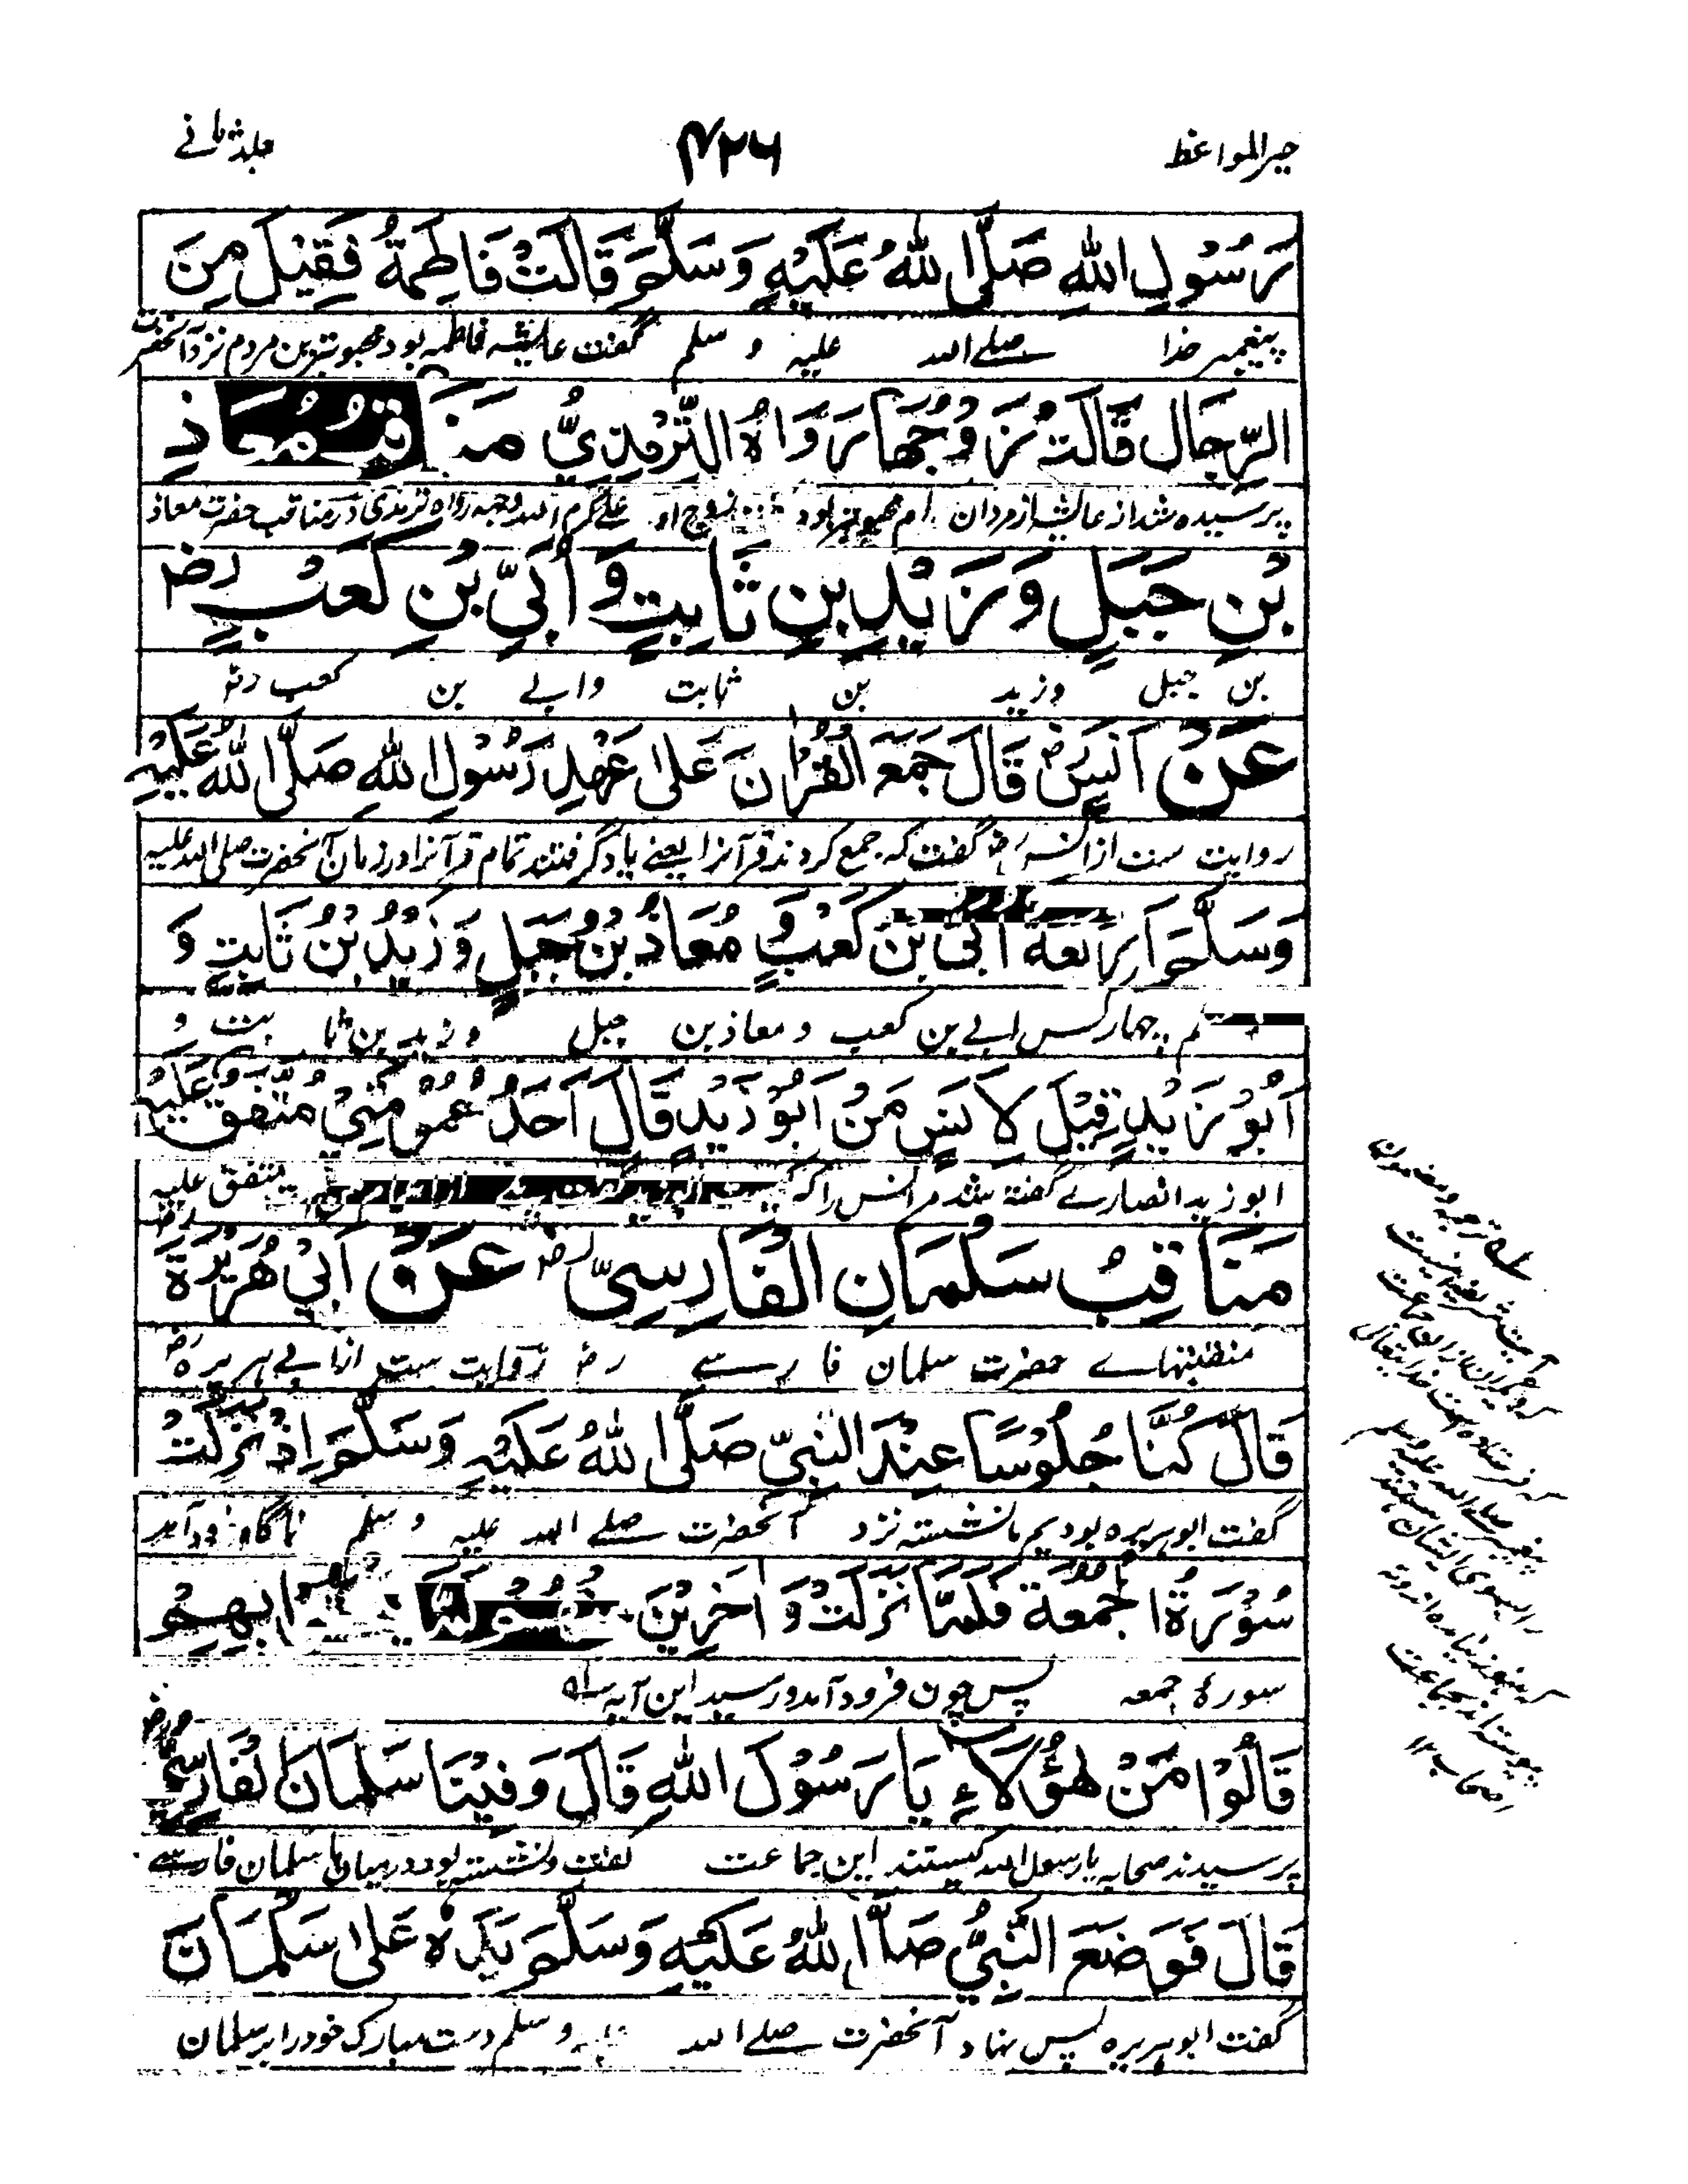 خیرالمواعظ
۴۲۶
جلد ثانے
رَسُوْلِ اللهِ صَلَّى اللهُ عَلَيْهِ وَسَلَّمَ قَالَتْ فَاطِمَةُ فَقِيْلَ مِنَ
پیغمبر خدا صلے اللہ علیہ و سلم گفت عایشہ فاطمہ بود محبوبترین مردم نزد آنحضرت
الرِّجَالِ قَالَتْ زَوْجُهَا رَوَاهُ التِّرْمِذِيُّ مَنَاقِبُ مُعَاذِ
پرسیدہ شد از عائشہ از مردان کدام محبوبتر بود زوج او علے کرم اللہ وجہہ رواہ ترمذی در مناقب حضرت معاذ
بْنِ جَبَلٍ وَزَيْدِ بْنِ ثَابِتٍ وَ أُبَيِّ بْنِ كَعْبٍ رض
بن جبل وزید بن ثابت وابے بن کعب رض
عَنْ اَنَسٍ رض قَالَ جَمَعَ الْقُرْاٰنَ عَلٰى عَهْدِ رَسُوْلِ اللهِ صَلَّى اللهُ عَلَيْهِ
روایت ست از انس رض گفت کہ جمع کردند قرآنرا یعنے یاد گرفتند تمام قرآنرا در زمان آنحضرت صلی اللہ علیہ
وَسَلَّمَ اَرْبَعَةٌ اُبَيُّ بْنُ كَعْبٍ وَ مُعَاذُ بْنُ جَبَلٍ وَ زَيْدُ بْنُ ثَابِتٍ وَ
چہار کس ابے بن کعب و معاذ بن جبل و زید بن ثا بت و
اَبُوْ زَيْدٍ قِيْلَ لِاَنَسٍ مَنْ اَبُوْ زَيْدٍ قَالَ اَحَدُ عُمُوْمَتِيْ مُتَّفَقٌ عَلَيْهِ
ابو زید انصارے گفتہ شد مر انس را کہ متفق علیہ
مَنَاقِبُ سَلْمَانِ الْفَارِسِيِّ رض عَنْ اَبِيْ هُرَيْرَةَ رض
منقبتہاے حضرت سلمان فارسے رض روایت ست از ابے ہریرہ رض
قَالَ كُنَّا جُلُوْسًا عِنْدَ النَّبِيِّ صَلَّى اللهُ عَلَيْهِ وَسَلَّمَ اِذْ نَزَلَتْ
گفت ابو ہریرہ بودیم ما نشستہ نزد آنحضرت صلے اللہ علیہ و سلم ناگاہ فرود آمد
سُوْرَةُ الْجُمُعَةِ فَلَمَّا نَزَلَتْ وَ اٰخَرِيْنَ مِنْهُمْ لَمَّا يَلْحَقُوْا بِهِمْ
سورۂ جمعہ پس چون فرود آمد و رسید این آیہ
قَالُوْا مَنْ هٰؤُلَاءِ يَا رَسُوْلَ اللهِ قَالَ وَ فِيْنَا سَلْمَانُ الْفَارِسِيُّ رض
پرسیدند صحابہ یا رسول اللہ کیستند این جماعت گفت و نشستہ بود درمیان ما سلمان فارسے
قَالَ فَوَضَعَ النَّبِيُّ صَلَّى اللهُ عَلَيْهِ وَسَلَّمَ يَدَهٗ عَلٰى سَلْمَانَ
گفت ابو ہریرہ پس نہاد آنحضرت صلے اللہ علیہ و سلم دست مبارک خود را بر سلمان
ترجمہ و مضمون
آیت شریفہ اینست
و دیگران از ان جماعت
فرستادہ است خدایتعالی
پیغمبر صلے اللہ علیہ وسلم
را بسوی ایشان
ہنوز
پیوستہ اند بجماعت
اصحاب ۱۲